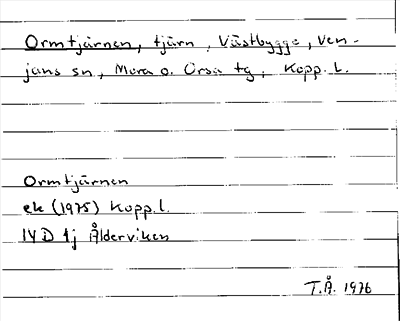 Ormtjärnen, tjärn, Västbygge, Ven-
jans sn, Mora o. Orsa tg, Kopp. l.
Ormtjärnen
ek (1975) Kopp. l.
14D 1j Ålderviken
T.Å. 1976